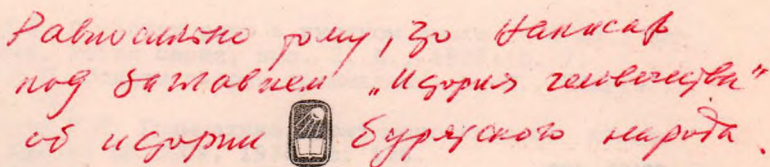 Равносильно тому, что написав
под заглавием „История человечества“
об истории бурятского народа.